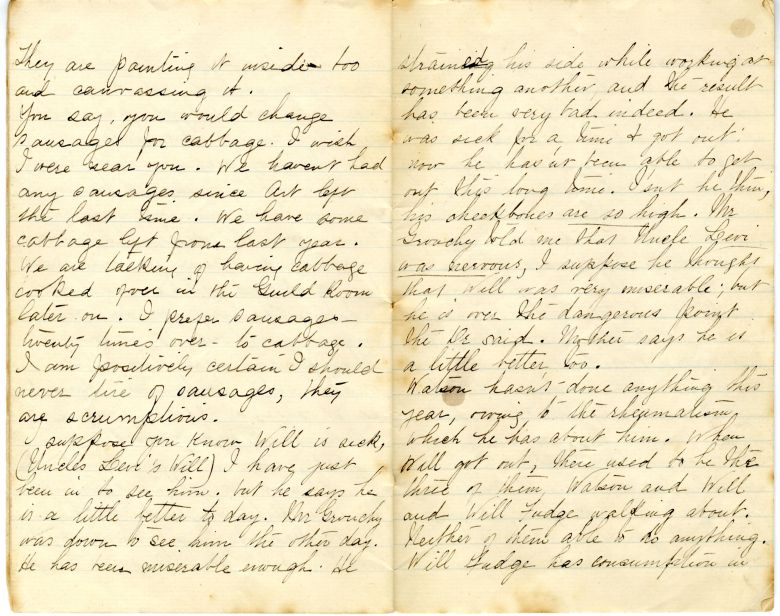 They are painting it inside too
and canvassing it.
You say, you would change
sausages for cabbage. I wish
I were near you. We havent had
any sausages since Art left
the last time. We have some
cabbage left from last year.
We are talking of having cabbage
cooked over in the Guild Room
later on. I prefer sausages -
twenty times over - to cabbage.
I am positively certain I should
never tire of sausages, they
are scrumptious.
I suppose you know Will is sick,
(Uncles Levi's Will) I have just
been in to see him. but he says he
is a little better to day. Mr Grouchy
was down to see him the other day.
He has been miserable enough. He
straining his side while working at
something another, and the result
has been very bad indeed. He
was sick for a time & got out:
now he has'nt been able to get
out this long time. Isnt he thin,
his cheekbones are so high. Mr
Grouchy told me that Uncle Levi
was nervous, I suppose he thought
that Will was very miserable; but
he is over the dangerous point
the Dr said. Mother says he is
a little better, too.
Watson hasn't done anything this
year, owing to the rheumatism
which he has about him. When
Will got out, there used to be the
three of them, Watson and Will
and Will Fudge walking about.
Neither of them able to do anything.
Will Fudge has consumption in